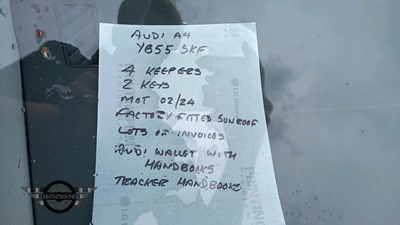 AUDI A4
YB55 SKF
4 KEEPERS
2 KEYS
MOT 02/24
FACTORY FITTED SUNROOF
LOTS OF INVOICES
AUDI WALLET WITH
HANDBOOKS
TRACKER HANDBOOKS